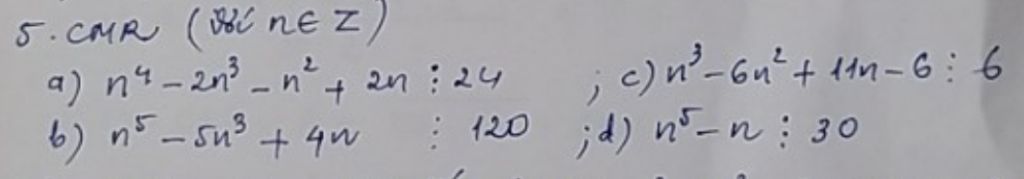 5. CMR (với n ∈ Z)
a) n⁴ - 2n³ - n² + 2n ⋮ 24 ; c) n³ - 6n² + 11n - 6 ⋮ 6
b) n⁵ - 5n³ + 4n ⋮ 120 ; d) n⁵ - n ⋮ 30